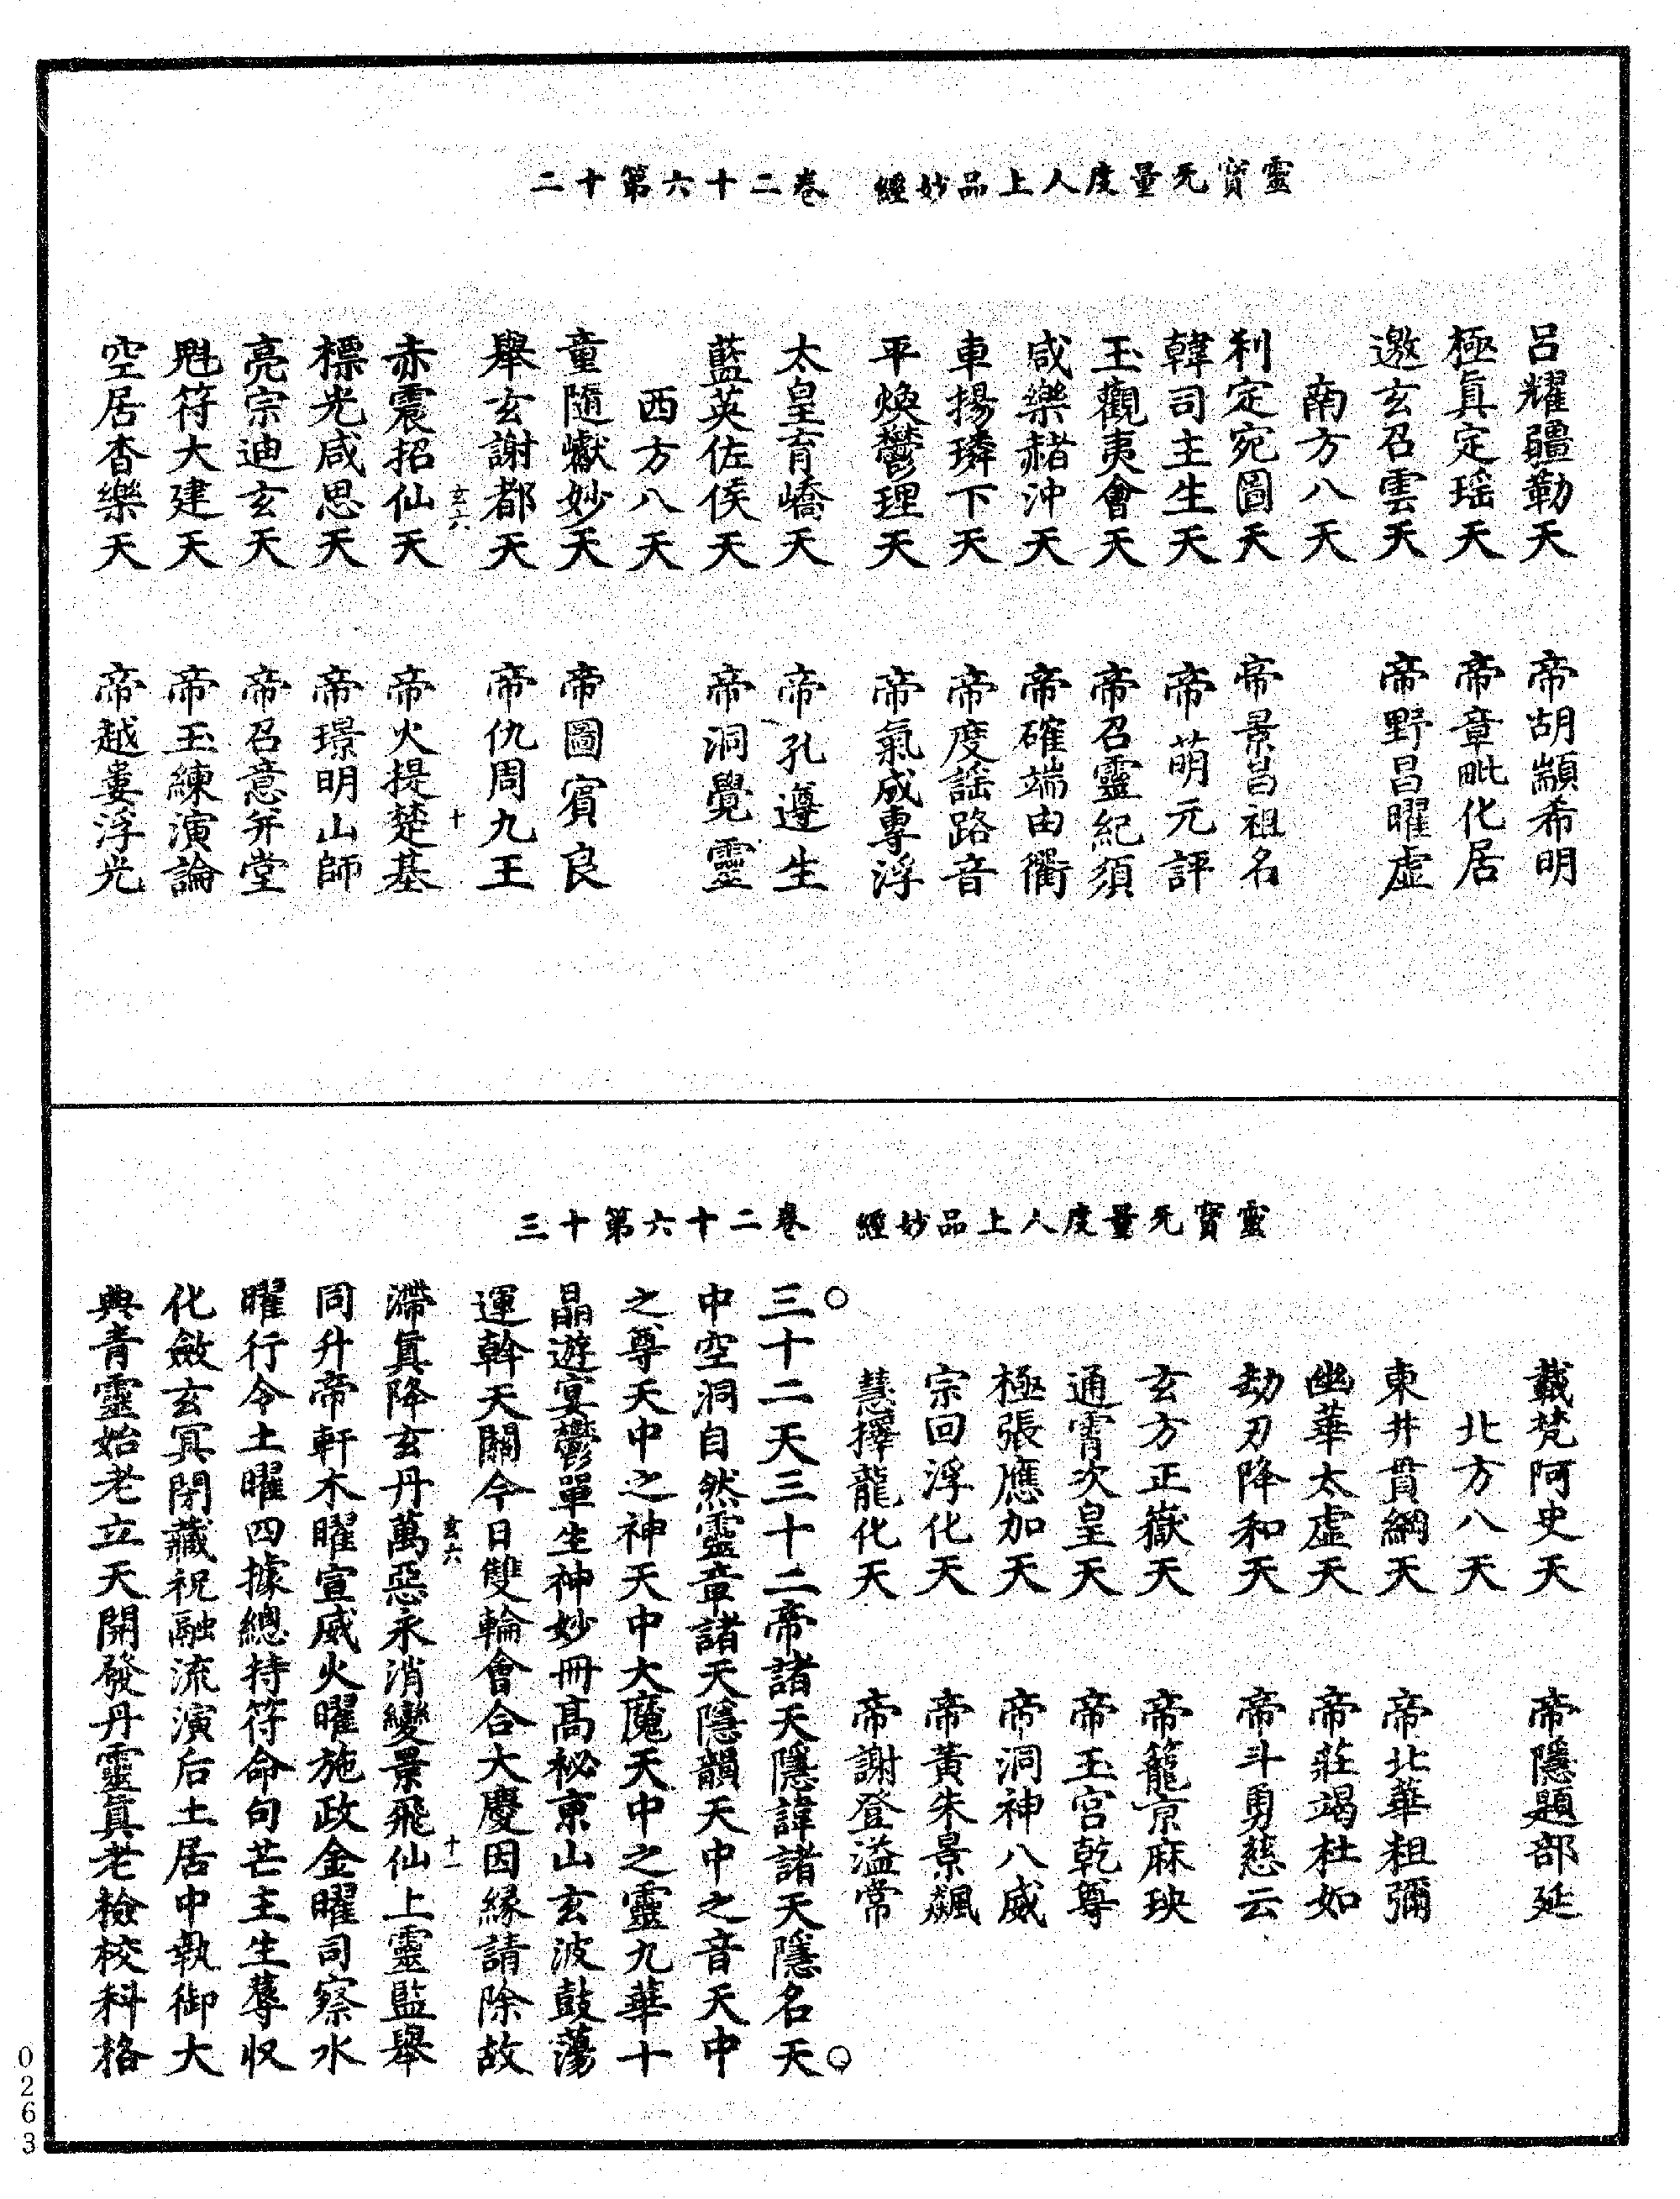 靈寶无量度人上品妙經　卷二十六第十二
呂耀疆勒天　帝胡顓希明
極眞定瑶天　帝章毗化居
邀玄召雲天　帝野昌曜虛
南方八天
刹定宛圖天　帝景昌祖名
韓司主生天　帝萌元評
玉觀夷會天　帝召靈紀須
咸樂赭沖天　帝確端由衢
車揚璘下天　帝度謡路音
平煥鬱理天　帝氣成專浮
太皇育嶠天　帝孔遵生
藍英佐侯天　帝洞覺靈
西方八天
童隨巘妙天　帝圖賔良
舉玄謝都天　帝仇周九王
玄六　十
赤震招仙天　帝火提楚基
標光咸思天　帝璟明山師
亮宗迪玄天　帝召意笄堂
魁符大建天　帝玉練演論
空居杳樂天　帝越婁浮光
靈寶无量度人上品妙經　卷二十六第十三
載梵阿吏天　帝隱題部延
北方八天
東井貫綱天　帝北華柤彌
幽華太虛天　帝莊竭杜如
劫刃降和天　帝斗勇慈云
玄方正嶽天　帝籠京麻玦
通霄次皇天　帝玉宮乾尊
極張應加天　帝洞神八威
宗回浮化天　帝黃朱景飆
慧擇龍化天　帝謝登溢常
○　○
三十二天三十二帝諸天隱諱諸天隱名天
中空洞自然靈章諸天隱韻天中之音天中
之尊天中之神天中大魔天中之靈九華十
晶遊宴鬱單生神妙冊髙祕京山玄波鼓蕩
運斡天關今日雙輪會合大慶因緣請除故
玄六　十一
滯眞降玄丹萬惡永消變景飛仙上靈監舉
同升帝軒木曜宣威火曜施政金曜司察水
曜行令土曜四據總持符命句芒主生蓐收
化斂玄冥閉藏祝融流演后土居中執御大
典青靈始老立天開發丹靈眞老檢校科格
0263